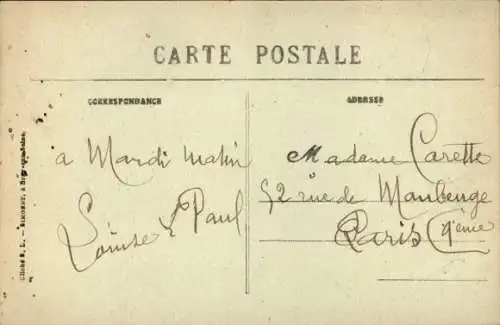 CARTE POSTALE
CORRESPONDANCE
ADRESSE
a Mardi matin
Louise & Paul
Madame Carette
52 rue de Maubeuge
Paris (9eme
Cliché E. L. —